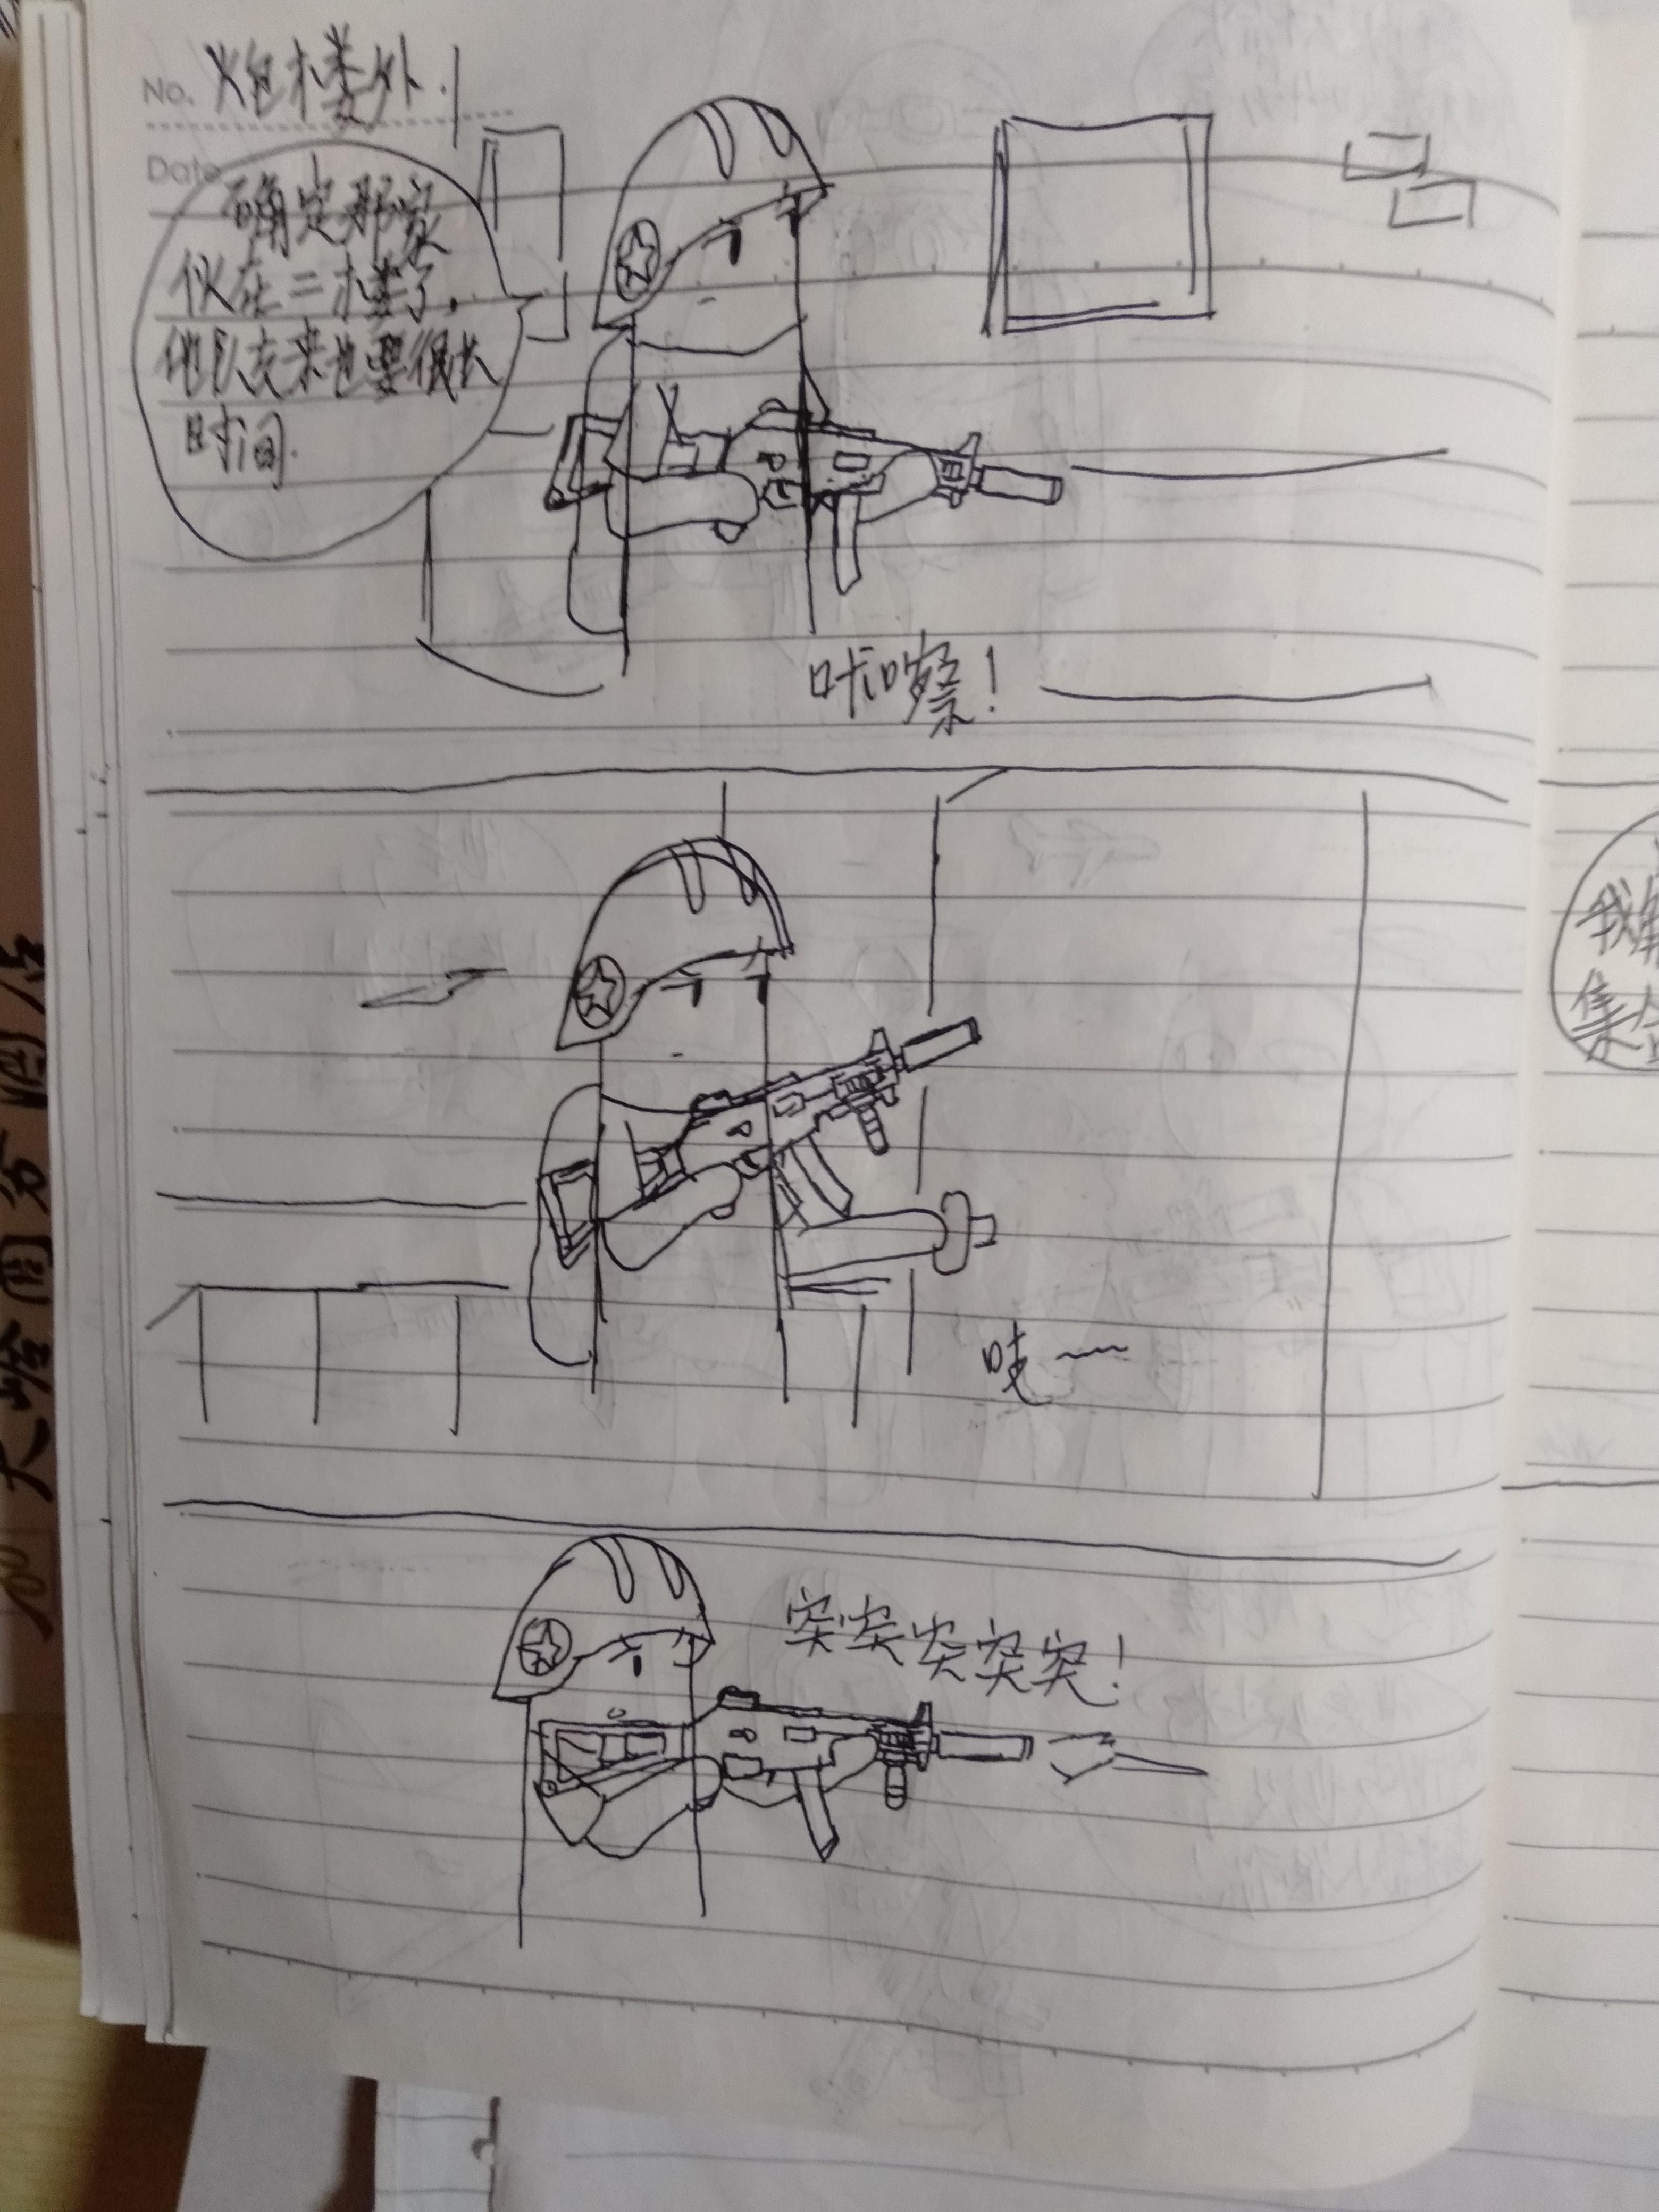 No. 炮楼外.
Date
确定那家
伙在三楼了.
他队支来也要很长
时间.
咔嚓!
哇~~
突突突突突!
我
集